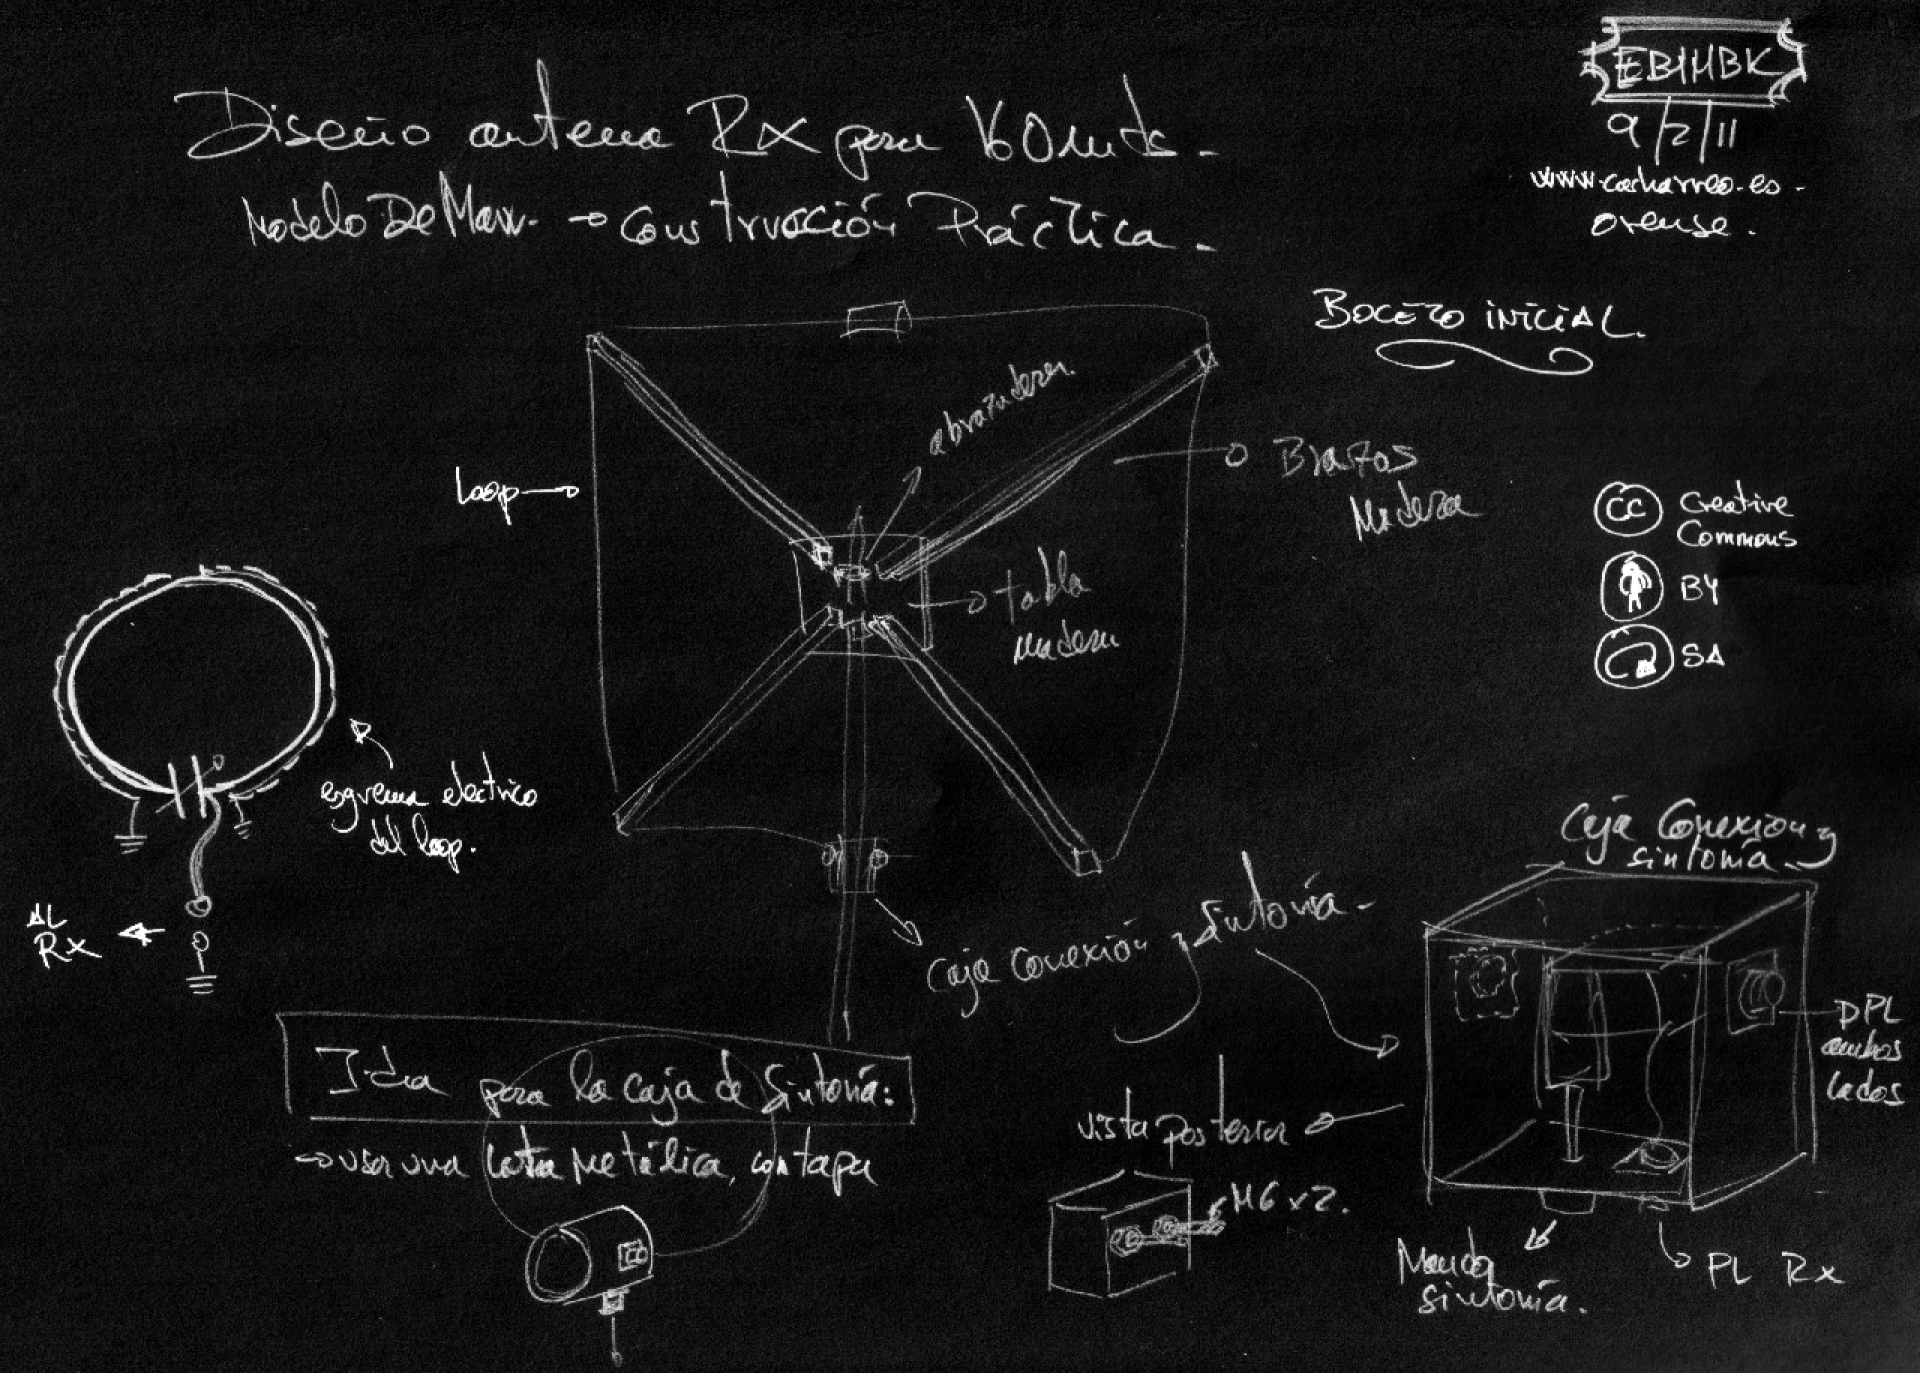 EB1HBK
9/2/11
www.cacharreo.es -
orense.
Diseño antena Rx para 160mts.
Modelo De Maw. → Construcción Práctica.
BOCETO INICIAL.
abrazadera
Brazos
Madera
Loop
tabla
madera
Creative
Commons
CC
BY
SA
esquema electrico
del loop.
AL
Rx
Caja Conexión y Sintonía.
Caja Conexion y
sintonía.
DPL
ambos
lados
Idea para la caja de Sintonía:
→ usar una lata Metálica, con tapa
vista posterior
M6 x 2.
Mando
sintonía.
PL Rx